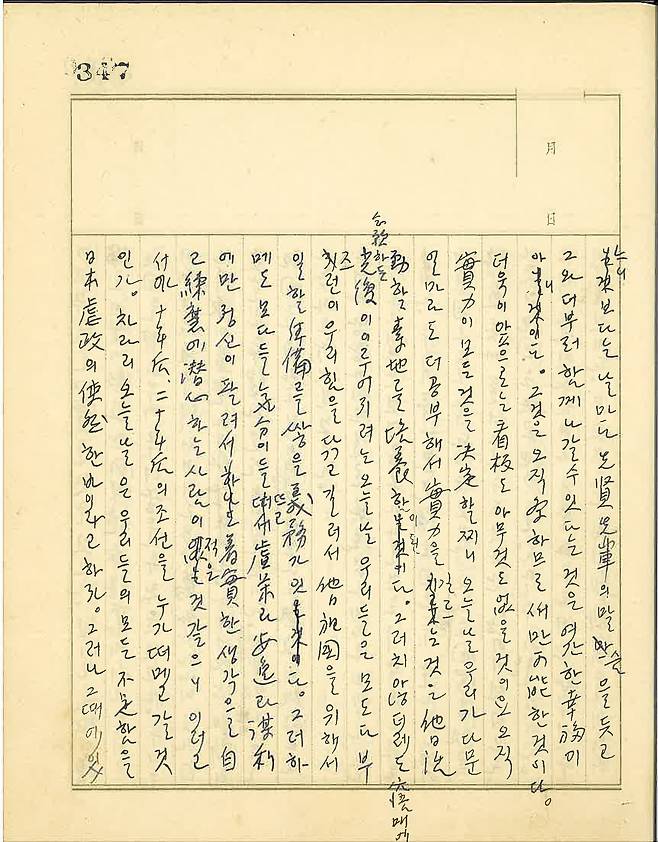 347
月
日
는 것보다는 날마다 先賢先輩의 말씀을 듣고
그와 더부러 함께 나갈 수 잇다는 것은 여간한 幸福이
아니다. 그것은 오직 공부하므로써만 可能한 것이다.
더욱이 앞으로는 看板도 아무것도 없을 것이오 오직
實力이 모든 것을 決定할 찌니 오늘날 우리가 다문
얼마라도 더 공부해서 實力을 기르는 것은 他日 活
動할 素地를 培養하는 것이 된다. 그러치 안트래도 寤寐에
念願하든
光復이 이루어지려는 오늘날 우리들은 모도다 부
즈런이 우리 힘을 다 길러서 他日 祖國을 위해서
일할 準備를 쌓을 義務가 잇다. 그러하
메도 모다들 氣分이 들떠서 虛榮과 安逸과 謀利
에만 정신이 팔려서 着實한 생각으로 自
己練磨에 潛心하는 사람이 적은 것 같으니 이러고
서야 十年后, 二十年后의 조선을 누가 떠메고 갈 것
인가. 차라리 오늘날은 우리들의 모든 不足함을
日本虐政의 使然한 바이라고 하자. 그러나 그때에 잇